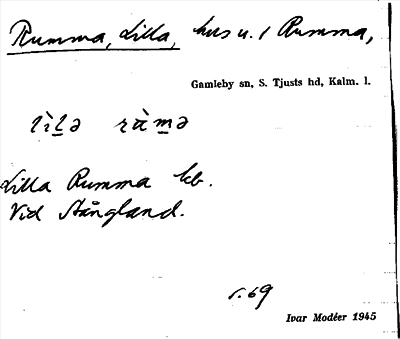 Rumma, Lilla, hus u. 1 Rumma,
Gamleby sn, S. Tjusts hd, Kalm. l.
lìl̠ə ràm̠ə
Lilla Rumma kb.
Vid Stångland.
s. 69
Ivar Modéer 1945